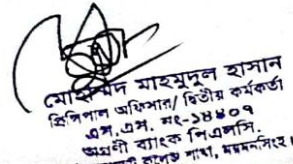 মোহাম্মদ মাহমুদুল হাসান
প্রিন্সিপাল অফিসার/ দ্বিতীয় কর্মকর্তা
এস.এস. নং-১৪৪০৭
অগ্রণী ব্যাংক পিএলসি.
কলেজ শাখা, ময়মনসিংহ।